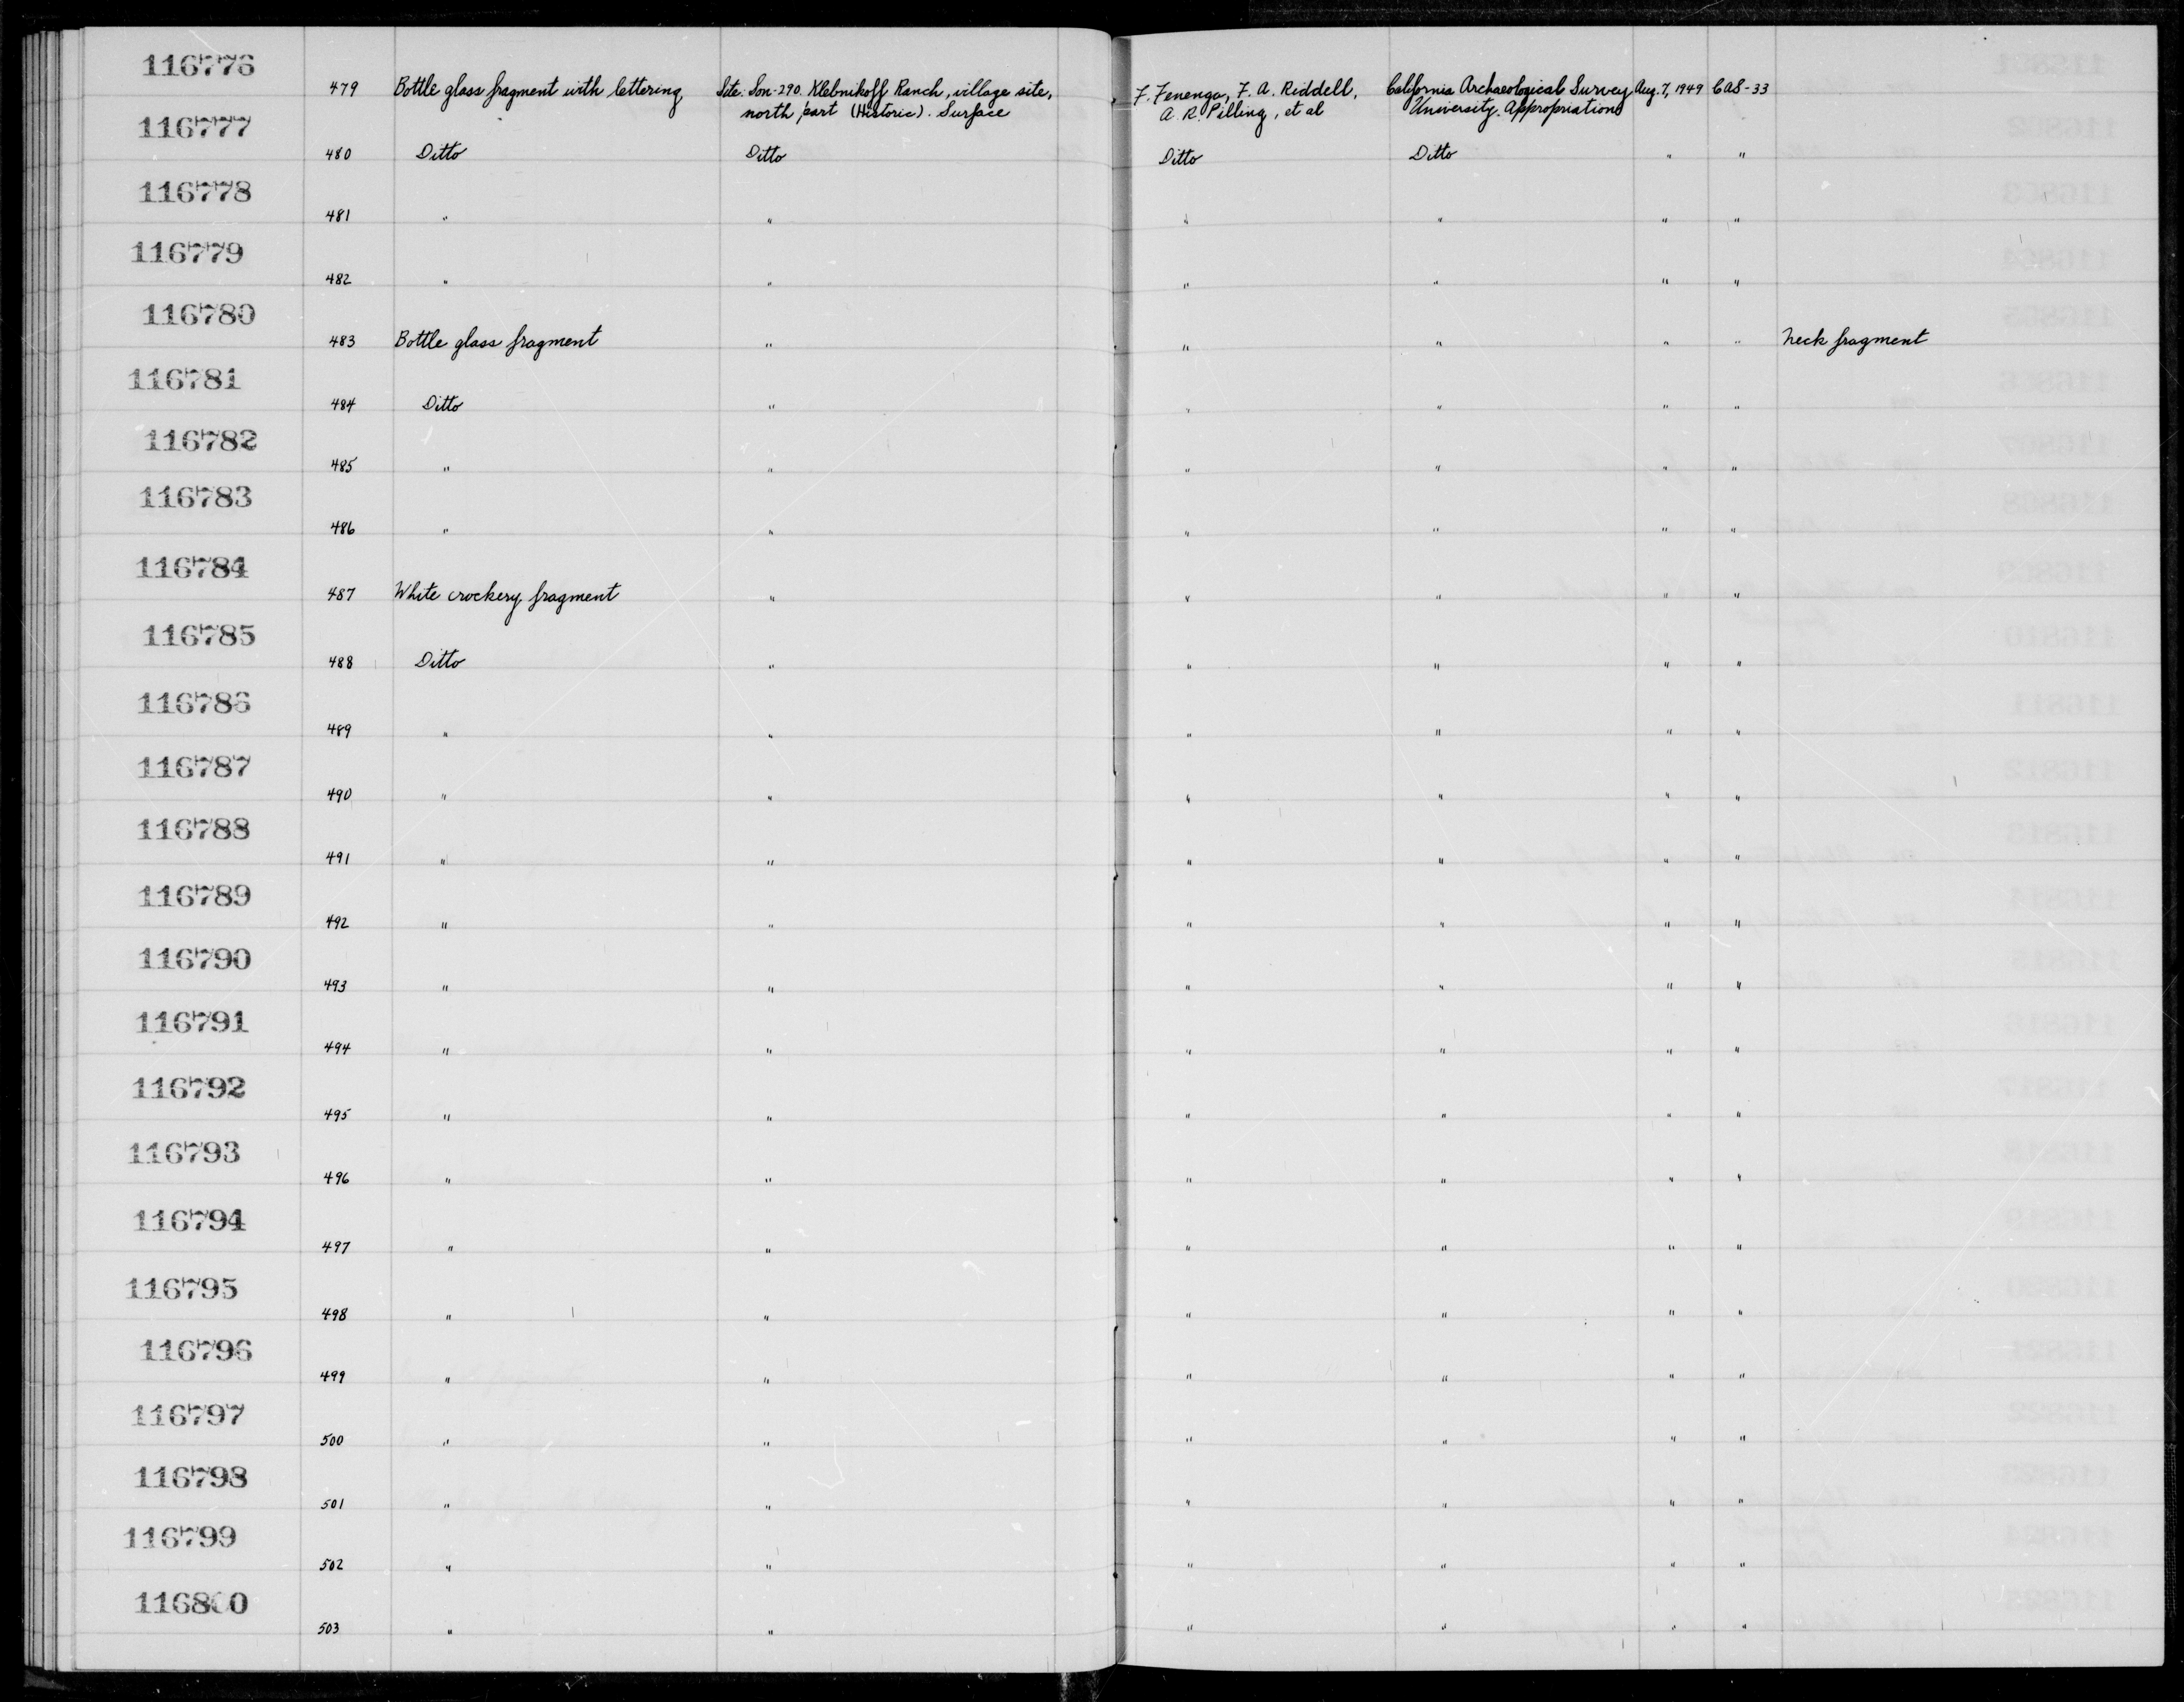 116776 479 Bottle glass fragment with lettering Site: Son-290. Klebnikoff Ranch, village site, F. Fenenga, F. A. Riddell, California Archaeological Survey Aug. 7, 1949 CAS-33
north part (Historic). Surface A. R. Pilling, et al University Appropriations
116777 480 Ditto Ditto Ditto Ditto " "
116778 481 " " " " " "
116779 482 " " " " " "
116780 483 Bottle glass fragment " " " " " Neck fragment
116781 484 Ditto " " " " "
116782 485 " " " " " "
116783 486 " " " " " "
116784 487 White crockery fragment " " " " "
116785 488 Ditto " " " " "
116786 489 " " " " " "
116787 490 " " " " " "
116788 491 " " " " " "
116789 492 " " " " " "
116790 493 " " " " " "
116791 494 " " " " " "
116792 495 " " " " " "
116793 496 " " " " " "
116794 497 " " " " " "
116795 498 " " " " " "
116796 499 " " " " " "
116797 500 " " " " " "
116798 501 " " " " " "
116799 502 " " " " " "
116800 503 " " " " " "